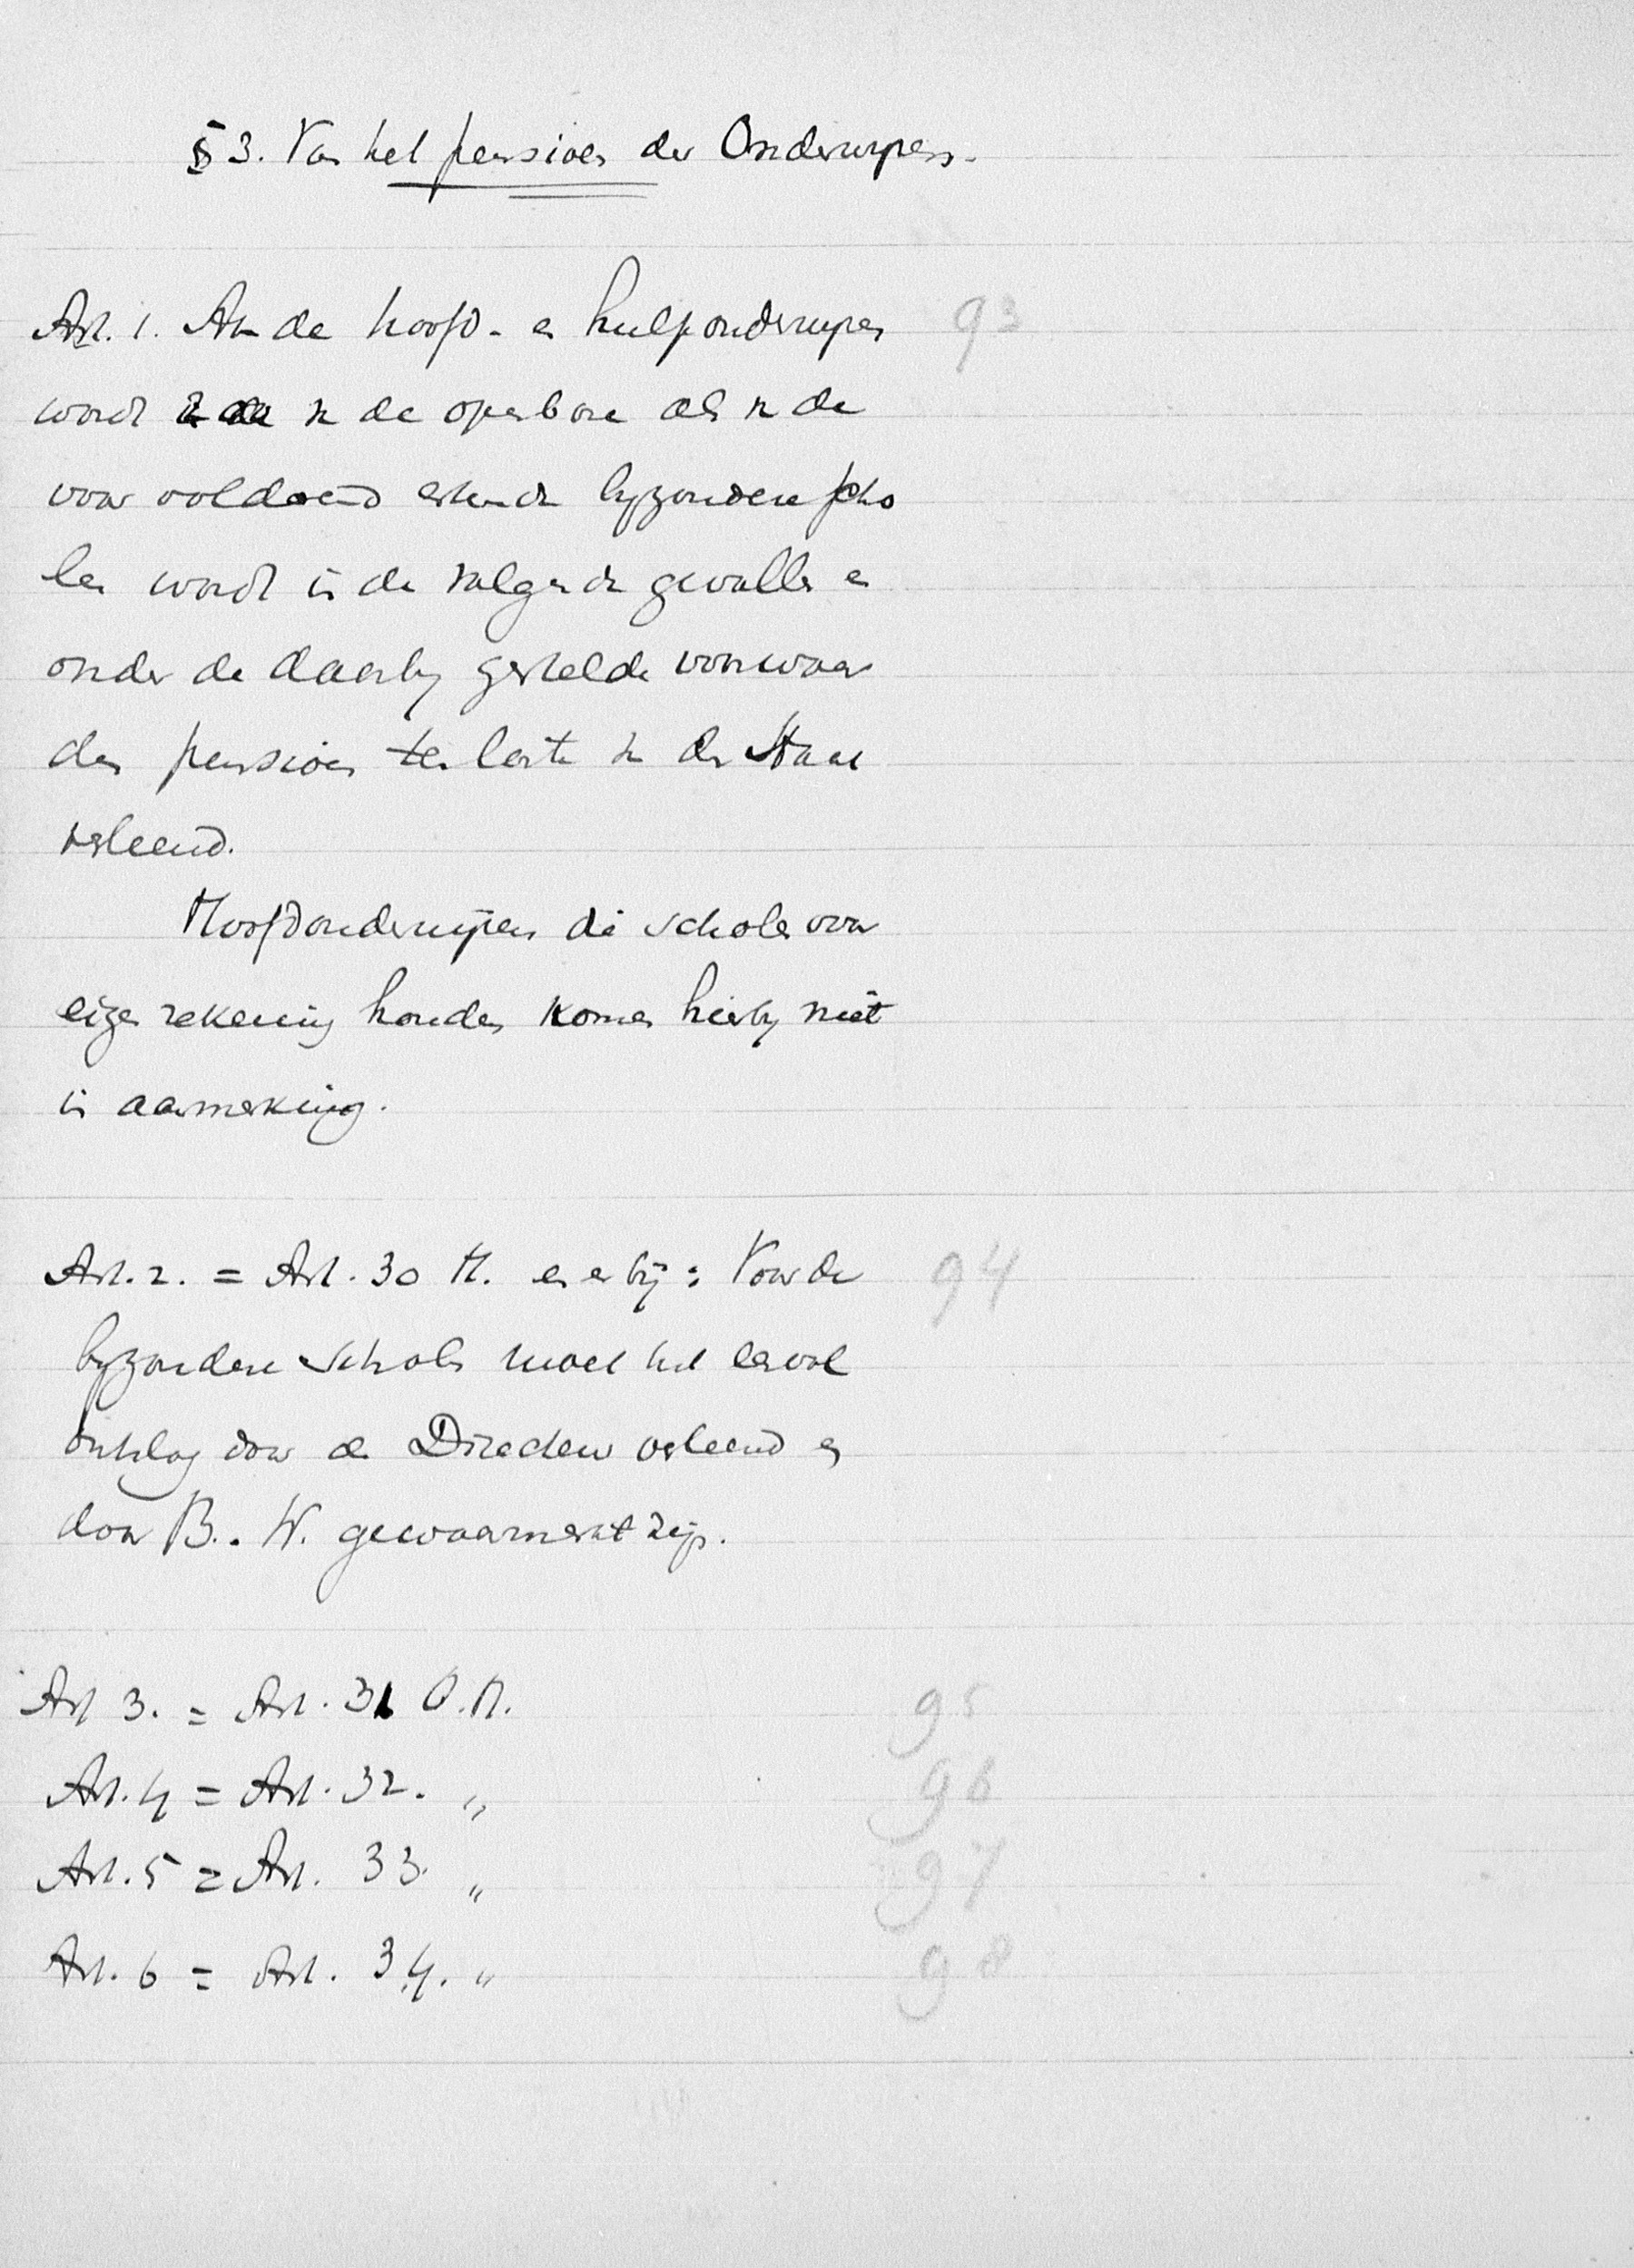 § 3. Van het pensioen der Onderwijzers.
Art. 1. Aan de hoofd- en hulponderwijzers 93
wordt van de openbare als van de
voor voldoend erkende byzondere scho
len wordt in de volgende gevallen en
onder de daarby gestelde voorwaar
den pensioen ten laste van den Staat
verleend.
Hoofdonderwijzers die scholen voor
eigen rekening houden komen hierby niet
in aanmerking.
Art. 2. = Art. 30 en er bij: Voor de 94
byzondere scholen moet het eervol
ontslag door de Directeur verleend en
door B. . W. gewaarmerkt zijn.
Art 3. = Art. 31 O.M. 95
Art. 4 = Art. 32. " 96
Art. 5 = Art. 33. " 97
Art. 6 = Art. 34. " 98